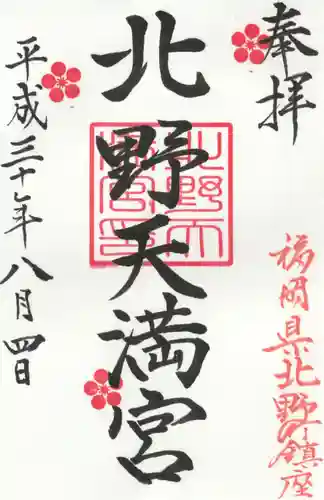 奉拝
福岡県北野鎮座
北野天満宮
北野天満宮印
平成三十年八月四日